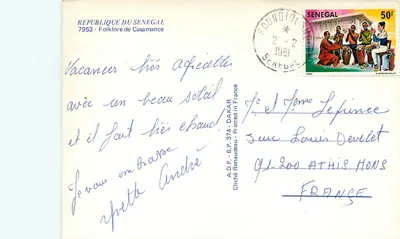 REPUBLIQUE DU SENEGAL
7953 - Folklore de Casamance
Vacances très agréables
avec un beau soleil
et il fait très chaud.
Je vous embrasse
Yvette André
A.D.P. - B.P. 374 - DAKAR
Cliché Renaudeau - Printed in France
2-2
1981
SENEGAL
SENEGAL
50F
Mr et Mme Leprince
rue Louis Develet
91-200 ATHIS MONS
FRANCE